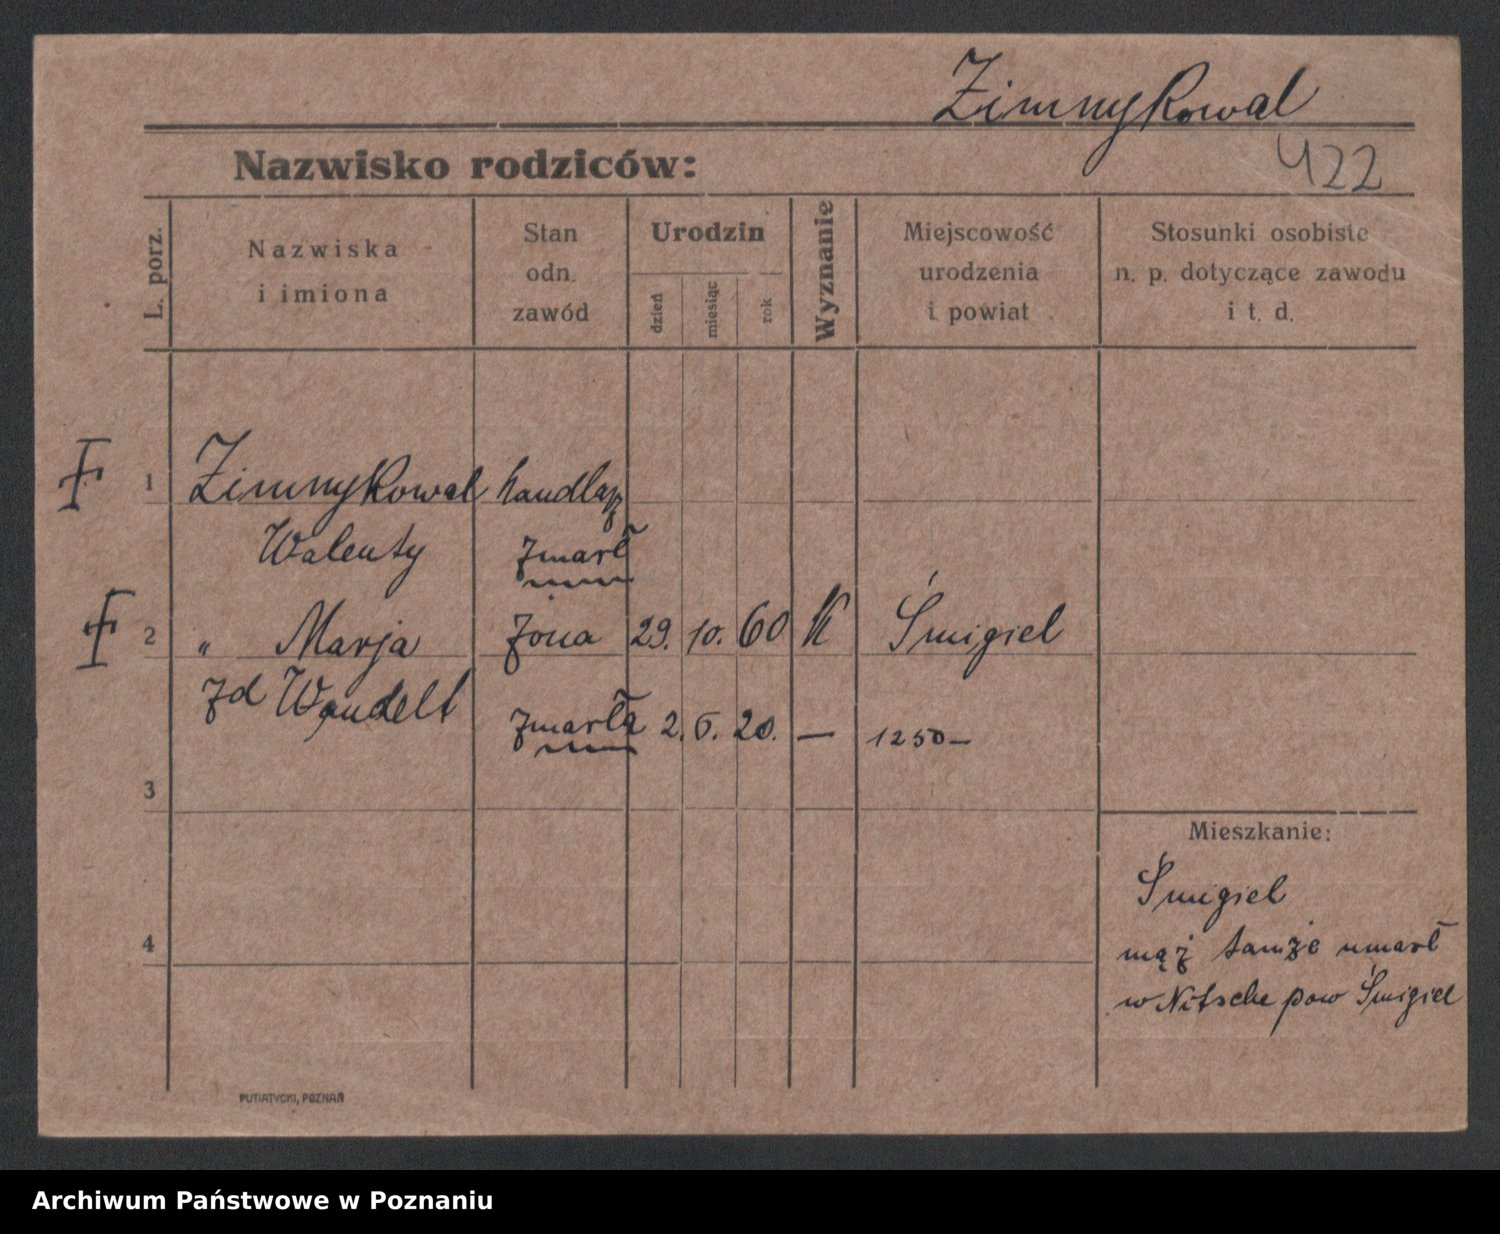 Zimnykowal
422
Nazwisko rodziców:
L. porz.
Nazwiska
i imiona
Stan
odn.
zawód
Urodzin
dzień
miesiąc
rok
Wyznanie
Miejscowość
urodzenia
i powiat
Stosunki osobiste
n. p. dotyczące zawodu
i t. d.
1 Zimnykowal handlarz
Walenty zmarł
2 " Marja żona 29. 10. 60 K Śmigiel
zd Wandelt
zmarła 2. 5. 20. — 1250–
3
Mieszkanie:
Śmigiel
mąż tamże umarł
w Nitsche pow Śmigiel
4
PUTIATYCKI, POZNAŃ
Archiwum Państwowe w Poznaniu